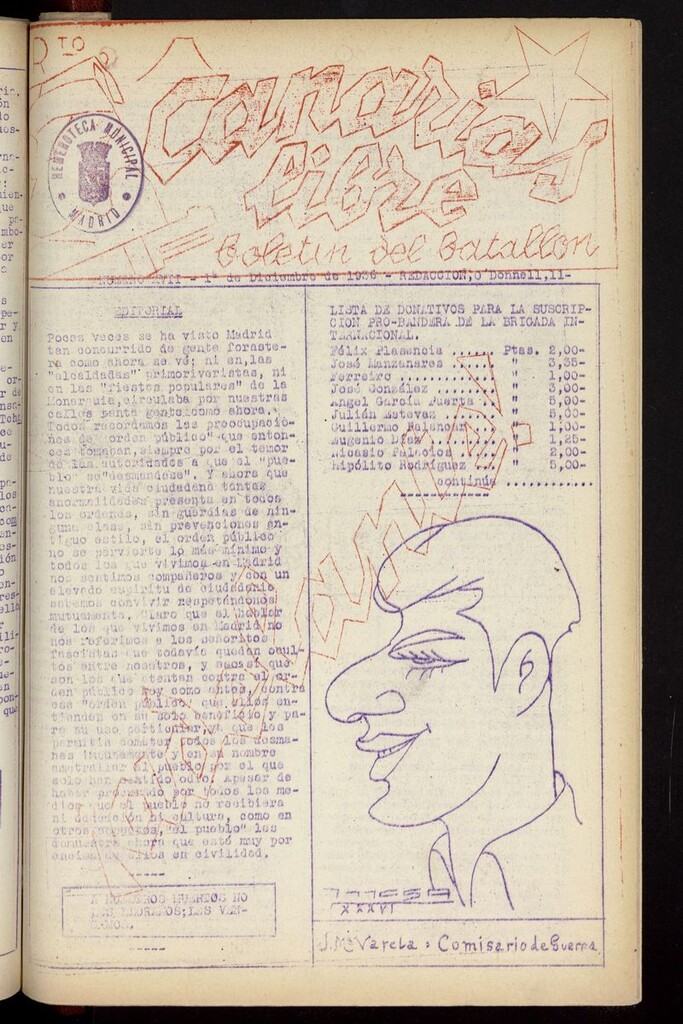 Canarias
Libre
Boletin del Batallon
HEMEROTECA MUNICIPAL
MADRID
NUMERO XVII - 1º de Diciembre de 1936 - REDACCION, O'Donnell, 11-
EDITORIAL
Pocas veces se ha visto Madrid
tan concurrido de gente foraste-
ra como ahora se ve; ni en, las
"alcaldadas" primoriveristas, ni
en las "fiestas populares" de la
Monarquia, circulaba por nuestras
calles tanta gente como ahora.
Todos recordamos las preocupacio-
nes de "orden público" que enton-
ces tomaban, siempre por el temor
de las autoridades a que el "pue-
blo" se "desmandase". Y ahora que
nuestra vida ciudadana tantas
anormalidades presenta en todos
los ordenes, sin guardias de nin-
guna clase, sin prevenciones an-
tiguo estilo, el orden público
no se pervierte lo más mínimo y
todos los que vivimos en Madrid
nos sentimos compañeros y con un
elevado espiritu de ciudadania
sabemos convivir respetándonos
mutuamente. Claro que al hablar
de los que vivimos en Madrid no
nos referimos a los señoritos
fascistas que todavía quedan ocul-
tos entre nosotros, y
son los que atentan contra el or-
den público hoy como antes, contra
ese "orden público" que ellos en-
tienden en su solo beneficio y pa-
ra su uso particular, ya que les
permitía cometer todos los desma-
nes impunemente y en su nombre
ametrallar al pueblo por el que
solo han sentido odio. Apesar de
haber procurado por todos los me-
dios que el pueblo no recibiera
ni educación ni cultura, como en
otros aspectos, "el pueblo" les
demuestra ahora que está muy por
encima de ellos en civilidad.
A NUESTROS MUERTOS NO
LES LLORAMOS; LES VEN-
GAMOS.
LISTA DE DONATIVOS PARA LA SUSCRIP-
CION PRO-BANDERA DE LA BRIGADA IN-
TERNACIONAL.
Félix Plasencia ...... Ptas. 2,00-
José Manzanares ..... " 3,35-
Ferreiro ............ " 1,00-
José González ....... " 3,00-
Angel García Puerta .. " 5,00-
Julián Estevez ...... " 5,00-
Guillermo Palencar .. " 1,00-
Eugenio Díez ........ " 1,25-
Nicasio Palacios .... " 2,00-
Hipólito Rodríguez ... " 5,00-
continúa ............
XXXVI
J. Mª Varela : Comisario de Guerra